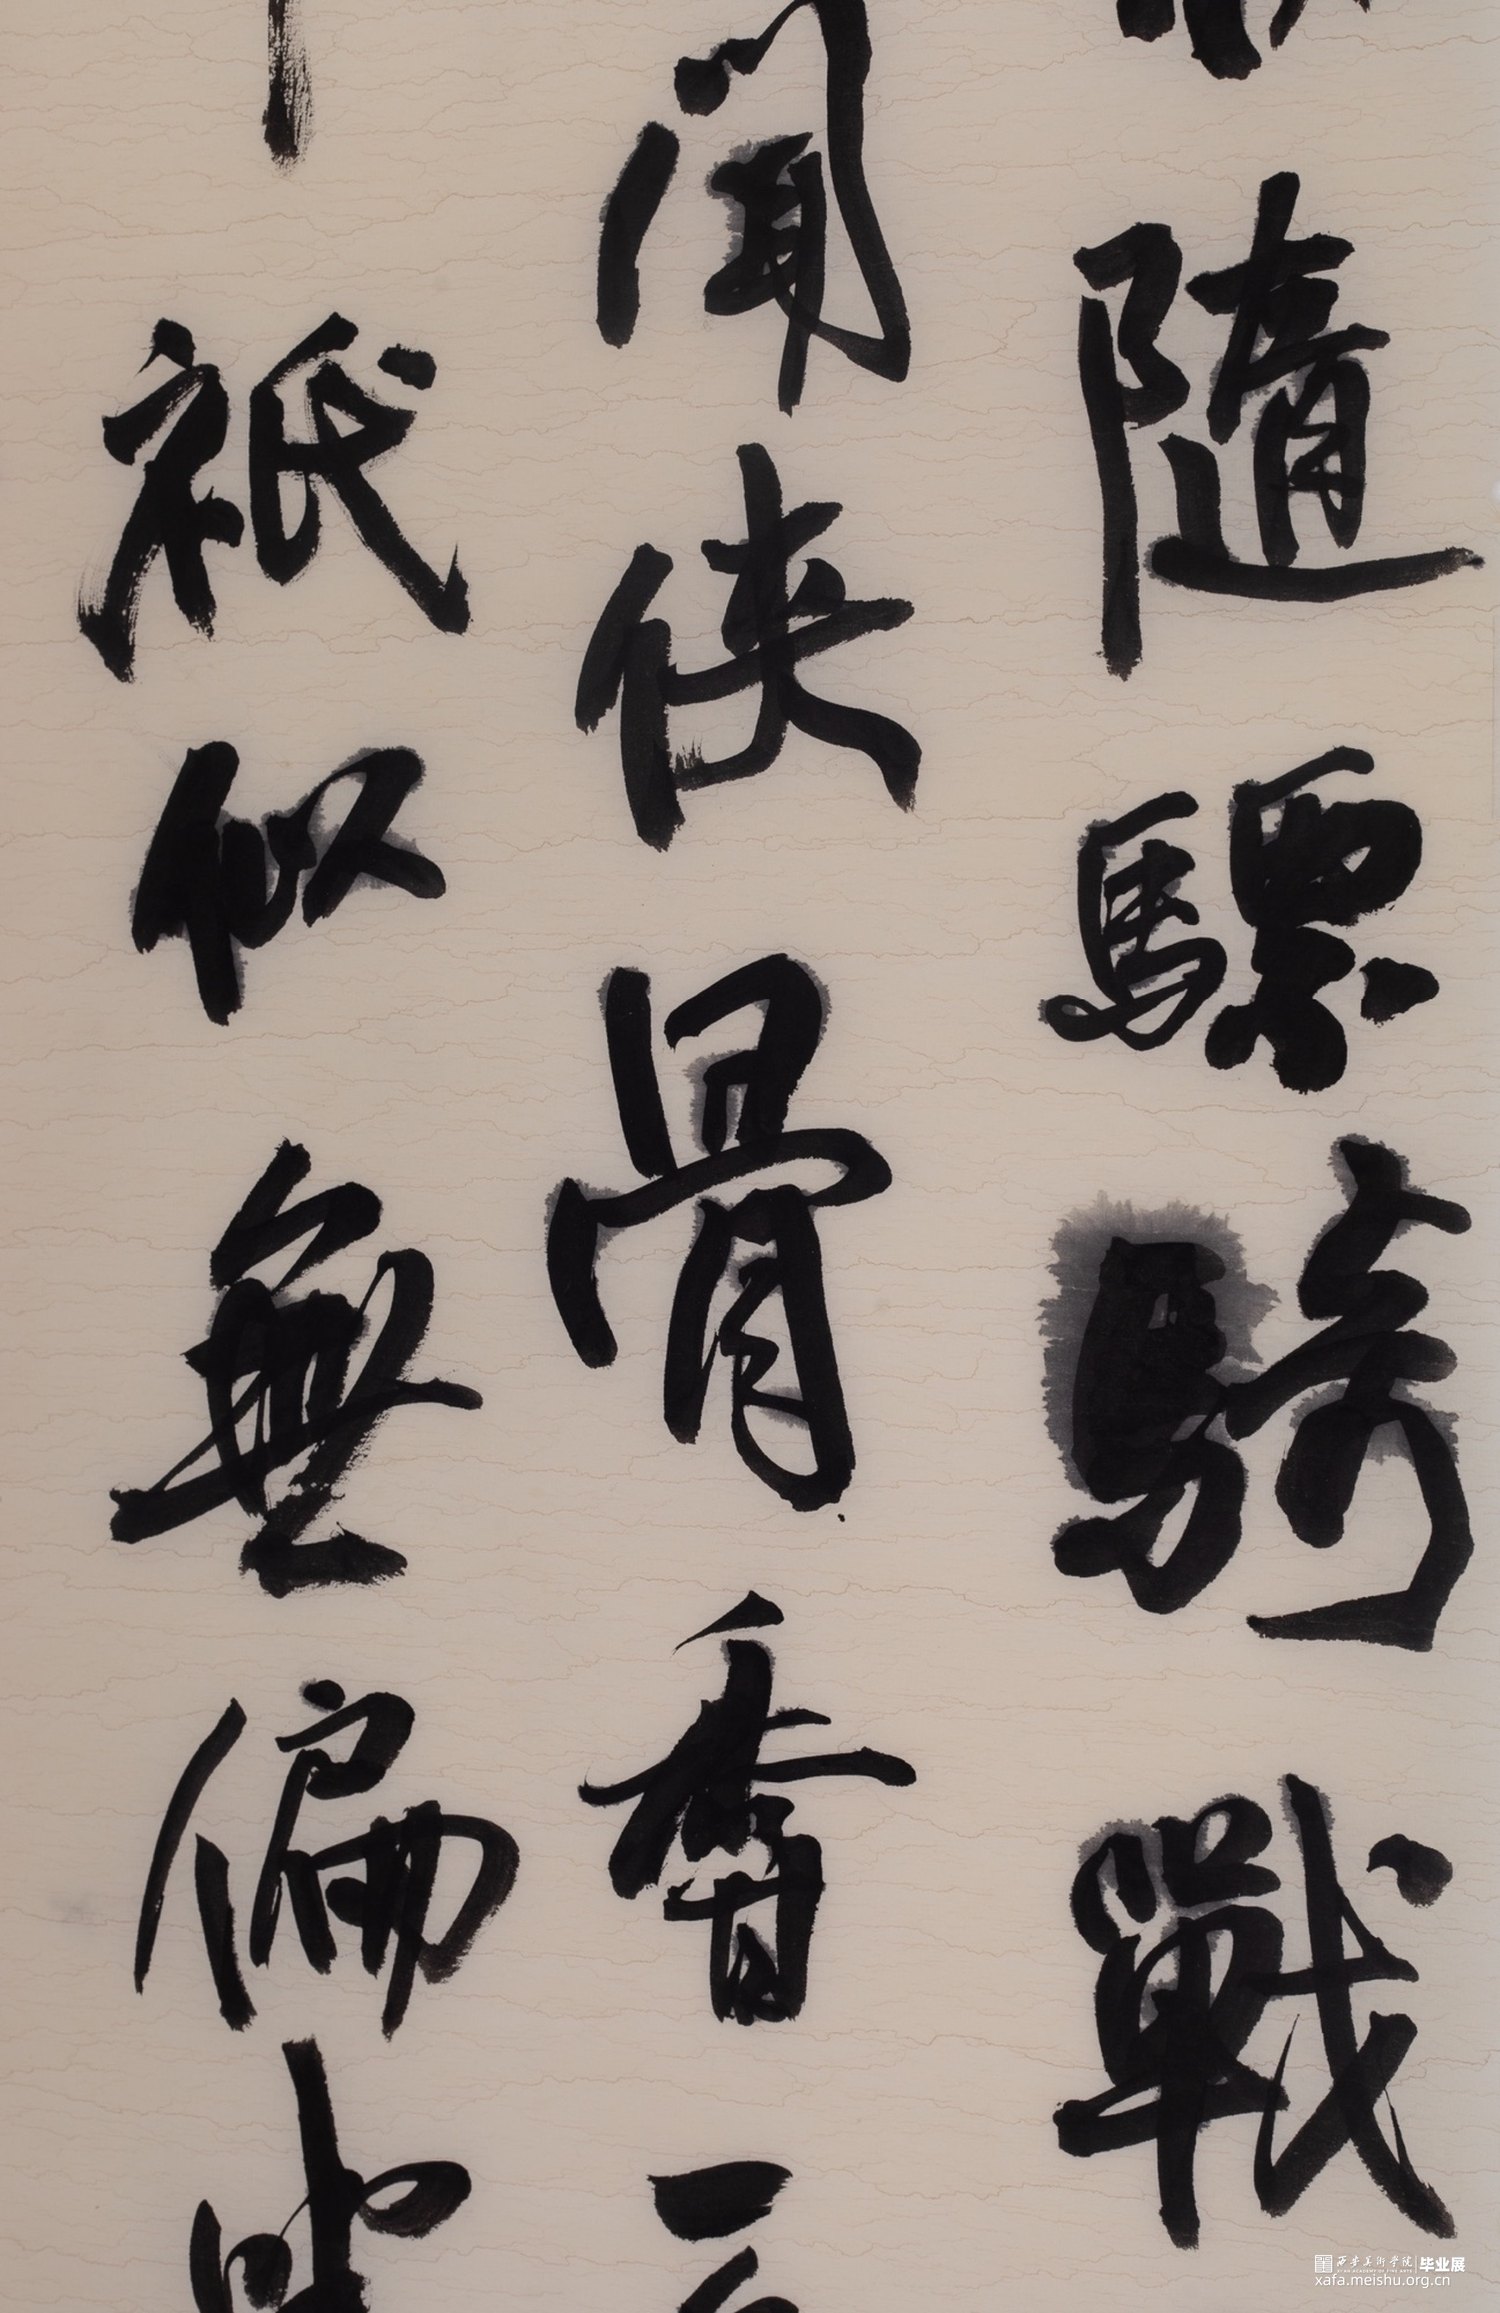 隨驃騎戰
聞俠骨香一
祗似無偏
西安美術學院 毕业展
XI'AN ACADEMY OF FINE ARTS
xafa.meishu.org.cn